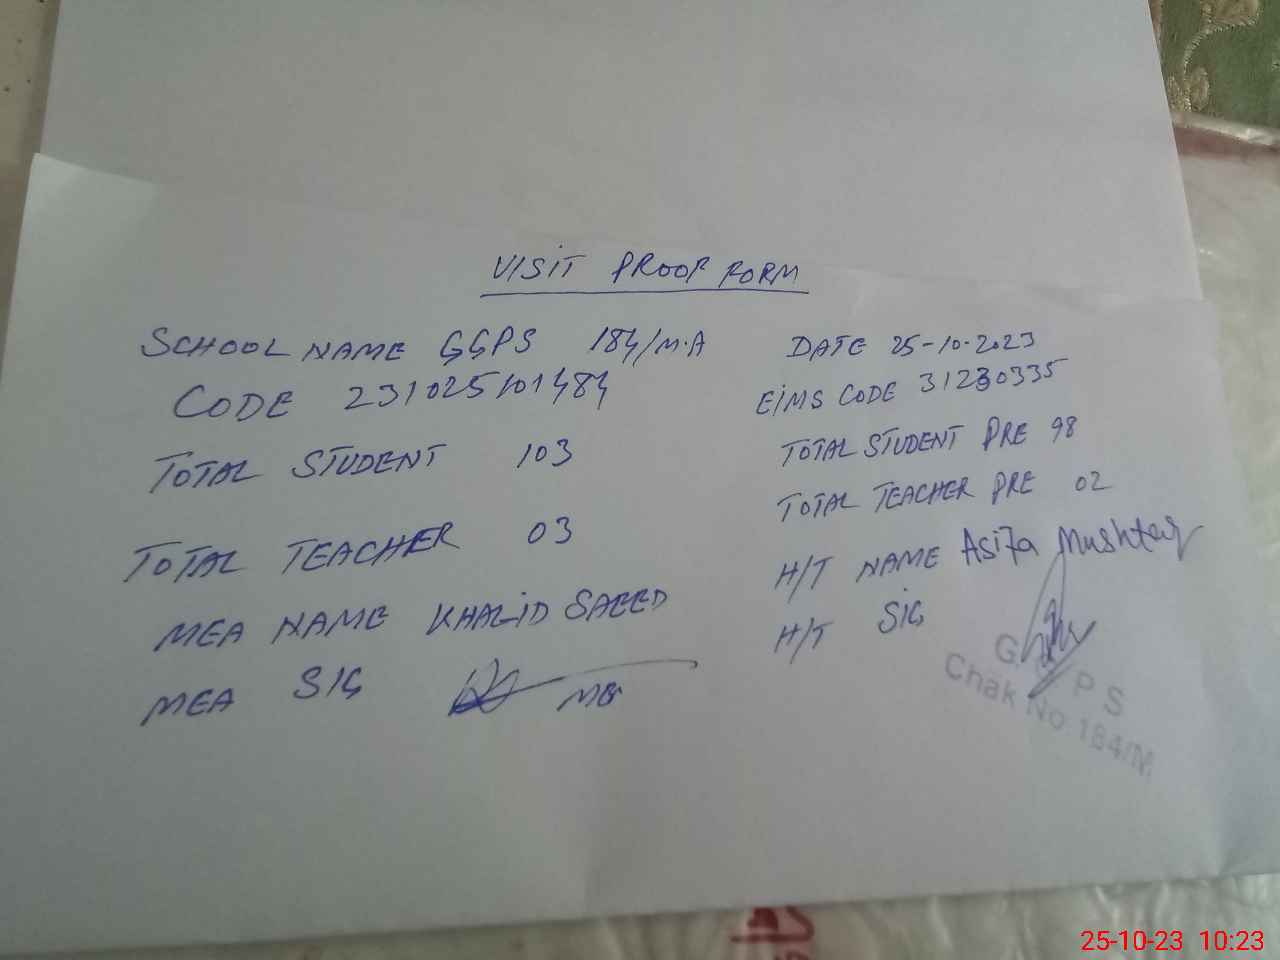 VISIT PROOF FORM
SCHOOL NAME GGPS 184/M.A
DATE 25-10-2023
CODE 231025101484
EIMS CODE 31230335
TOTAL STUDENT 103
TOTAL STUDENT PRE 98
TOTAL TEACHER 03
TOTAL TEACHER PRE 02
MEA NAME KHALID SAEED
H/T NAME Asifa Mushtaq
MEA SIG
H/T SIG
G PS
Chak No.184/M
25-10-23 10:23